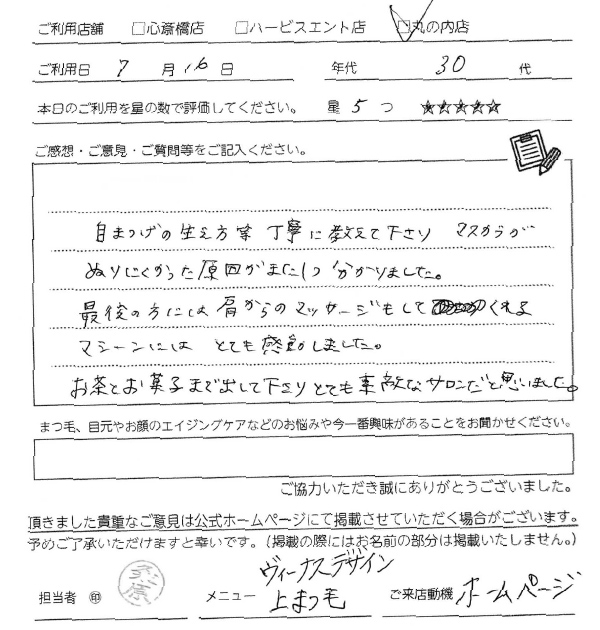 ご利用店舗 □心斎橋店 □ハービスエント店 ☑丸の内店
ご利用日 7 月 16 日 年代 30 代
本日のご利用を星の数で評価してください。 星 5 つ ★★★★★
ご感想・ご意見・ご質問等をご記入ください。
自まつげの生え方等 丁寧に教えて下さり マスカラが
ぬりにくかった原因がまた1つ分かりました。
最後の方には肩からのマッサージもしてくれる
マシーンには とても感動しました。
お茶とお菓子まで出して下さりとても素敵なサロンだと思いました。
まつ毛、目元やお顔のエイジングケアなどのお悩みや今一番興味があることをお聞かせください。
ご協力いただき誠にありがとうございました。
頂きました貴重なご意見は公式ホームページにて掲載させていただく場合がございます。
予めご了承いただけますと幸いです。(掲載の際にはお名前の部分は掲載いたしません。)
担当者 ㊞ メニュー ヴィーナスデザイン
上まつ毛 ご来店動機 ホームページ